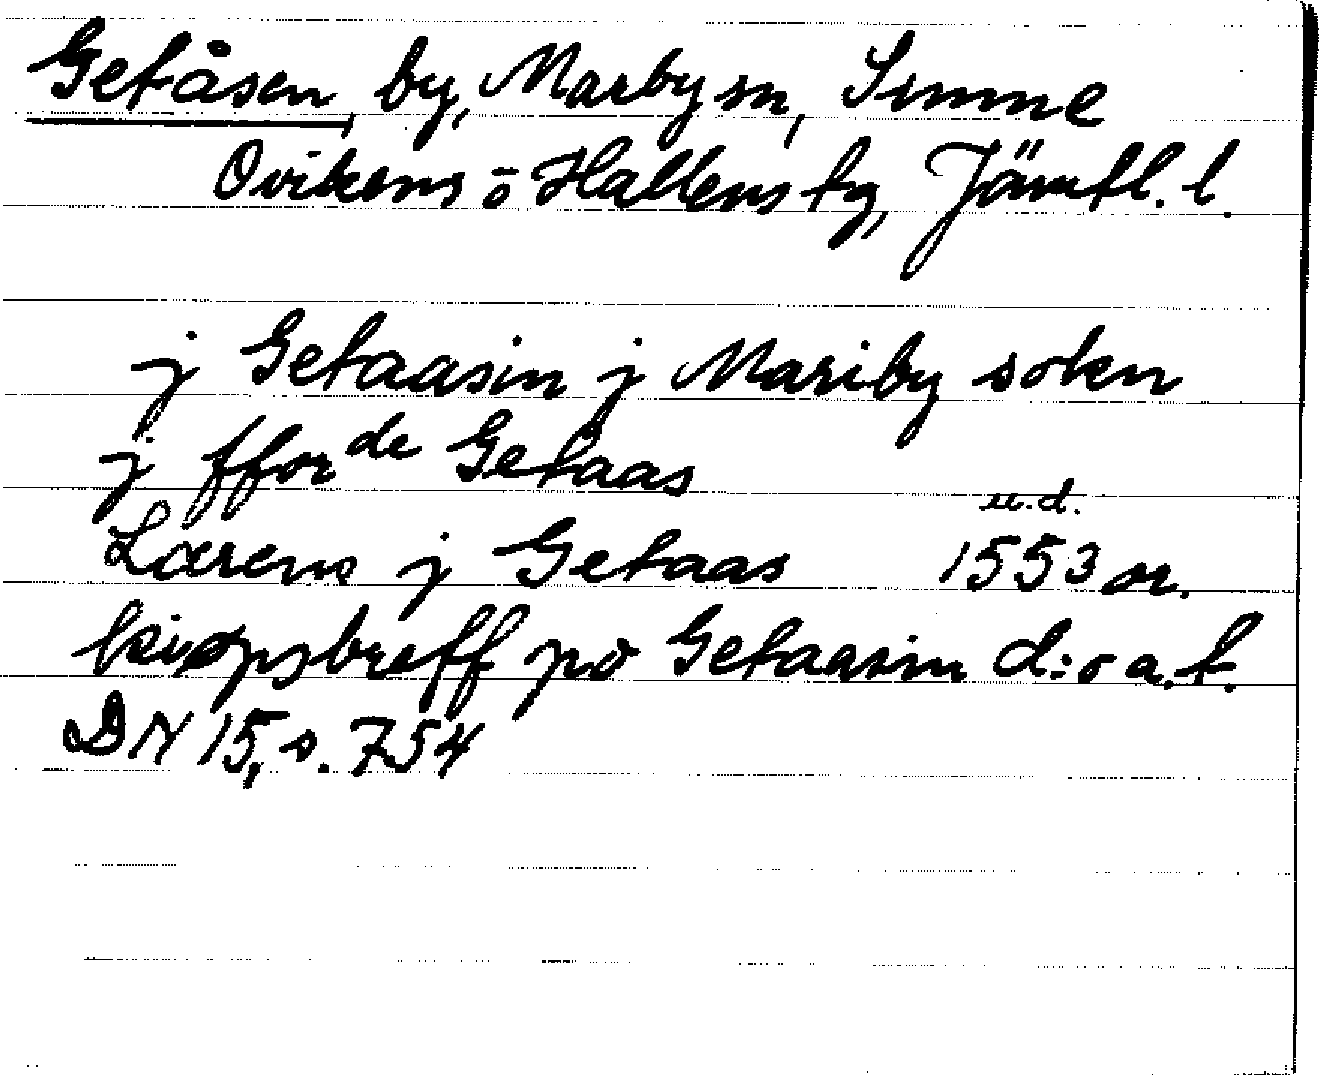 Getåsen, by, Marby sn, Sunne
Ovikens o Hallens tg, Jämtl. l.
j Getaasin j Mariby sokn
j ffor de Getaas
u.d.
Lærens j Getaas 1553 or.
kiøpsbreff po Getaasin d:o a.t.
DN 15, s. 754